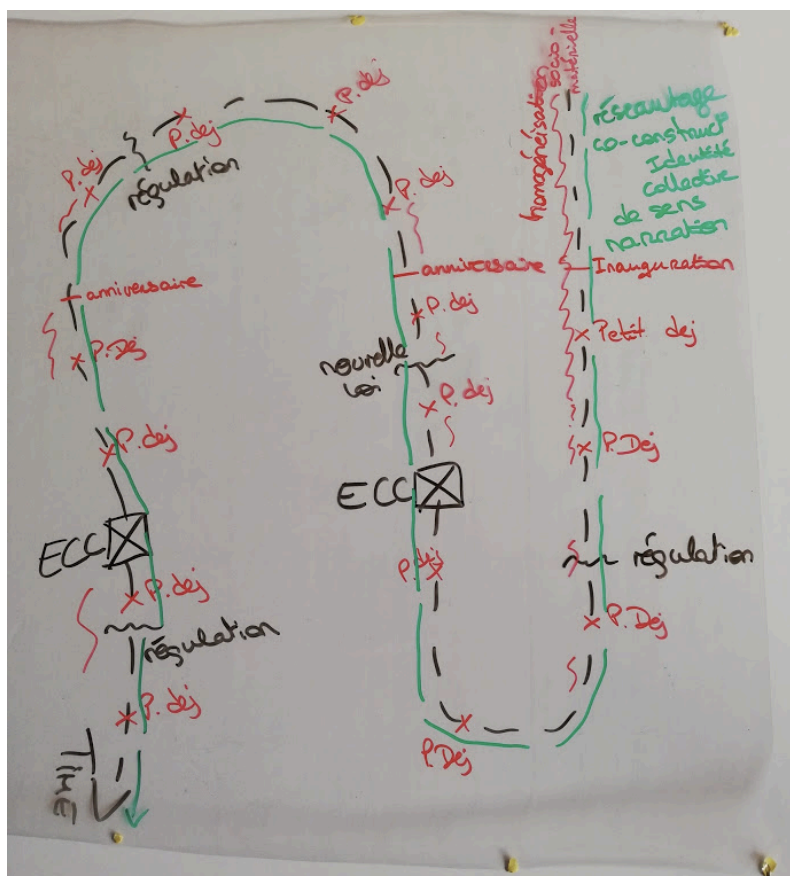 P. déj
P. déj
régulation
P. déj
P. déj
anniversaire
P. Déj
P. déj
ECC
P. déj
régulation
P. déj
Time
anniversaire
P. déj
nouvelle
Loi
P. déj
ECC
P. déj
P. Déj
homogénéisation
socio-
matérielle
réseautage
co-construct°
Identité
collective
de sens
narration
Inauguration
Petit dej
P. Déj
régulation
P. Déj